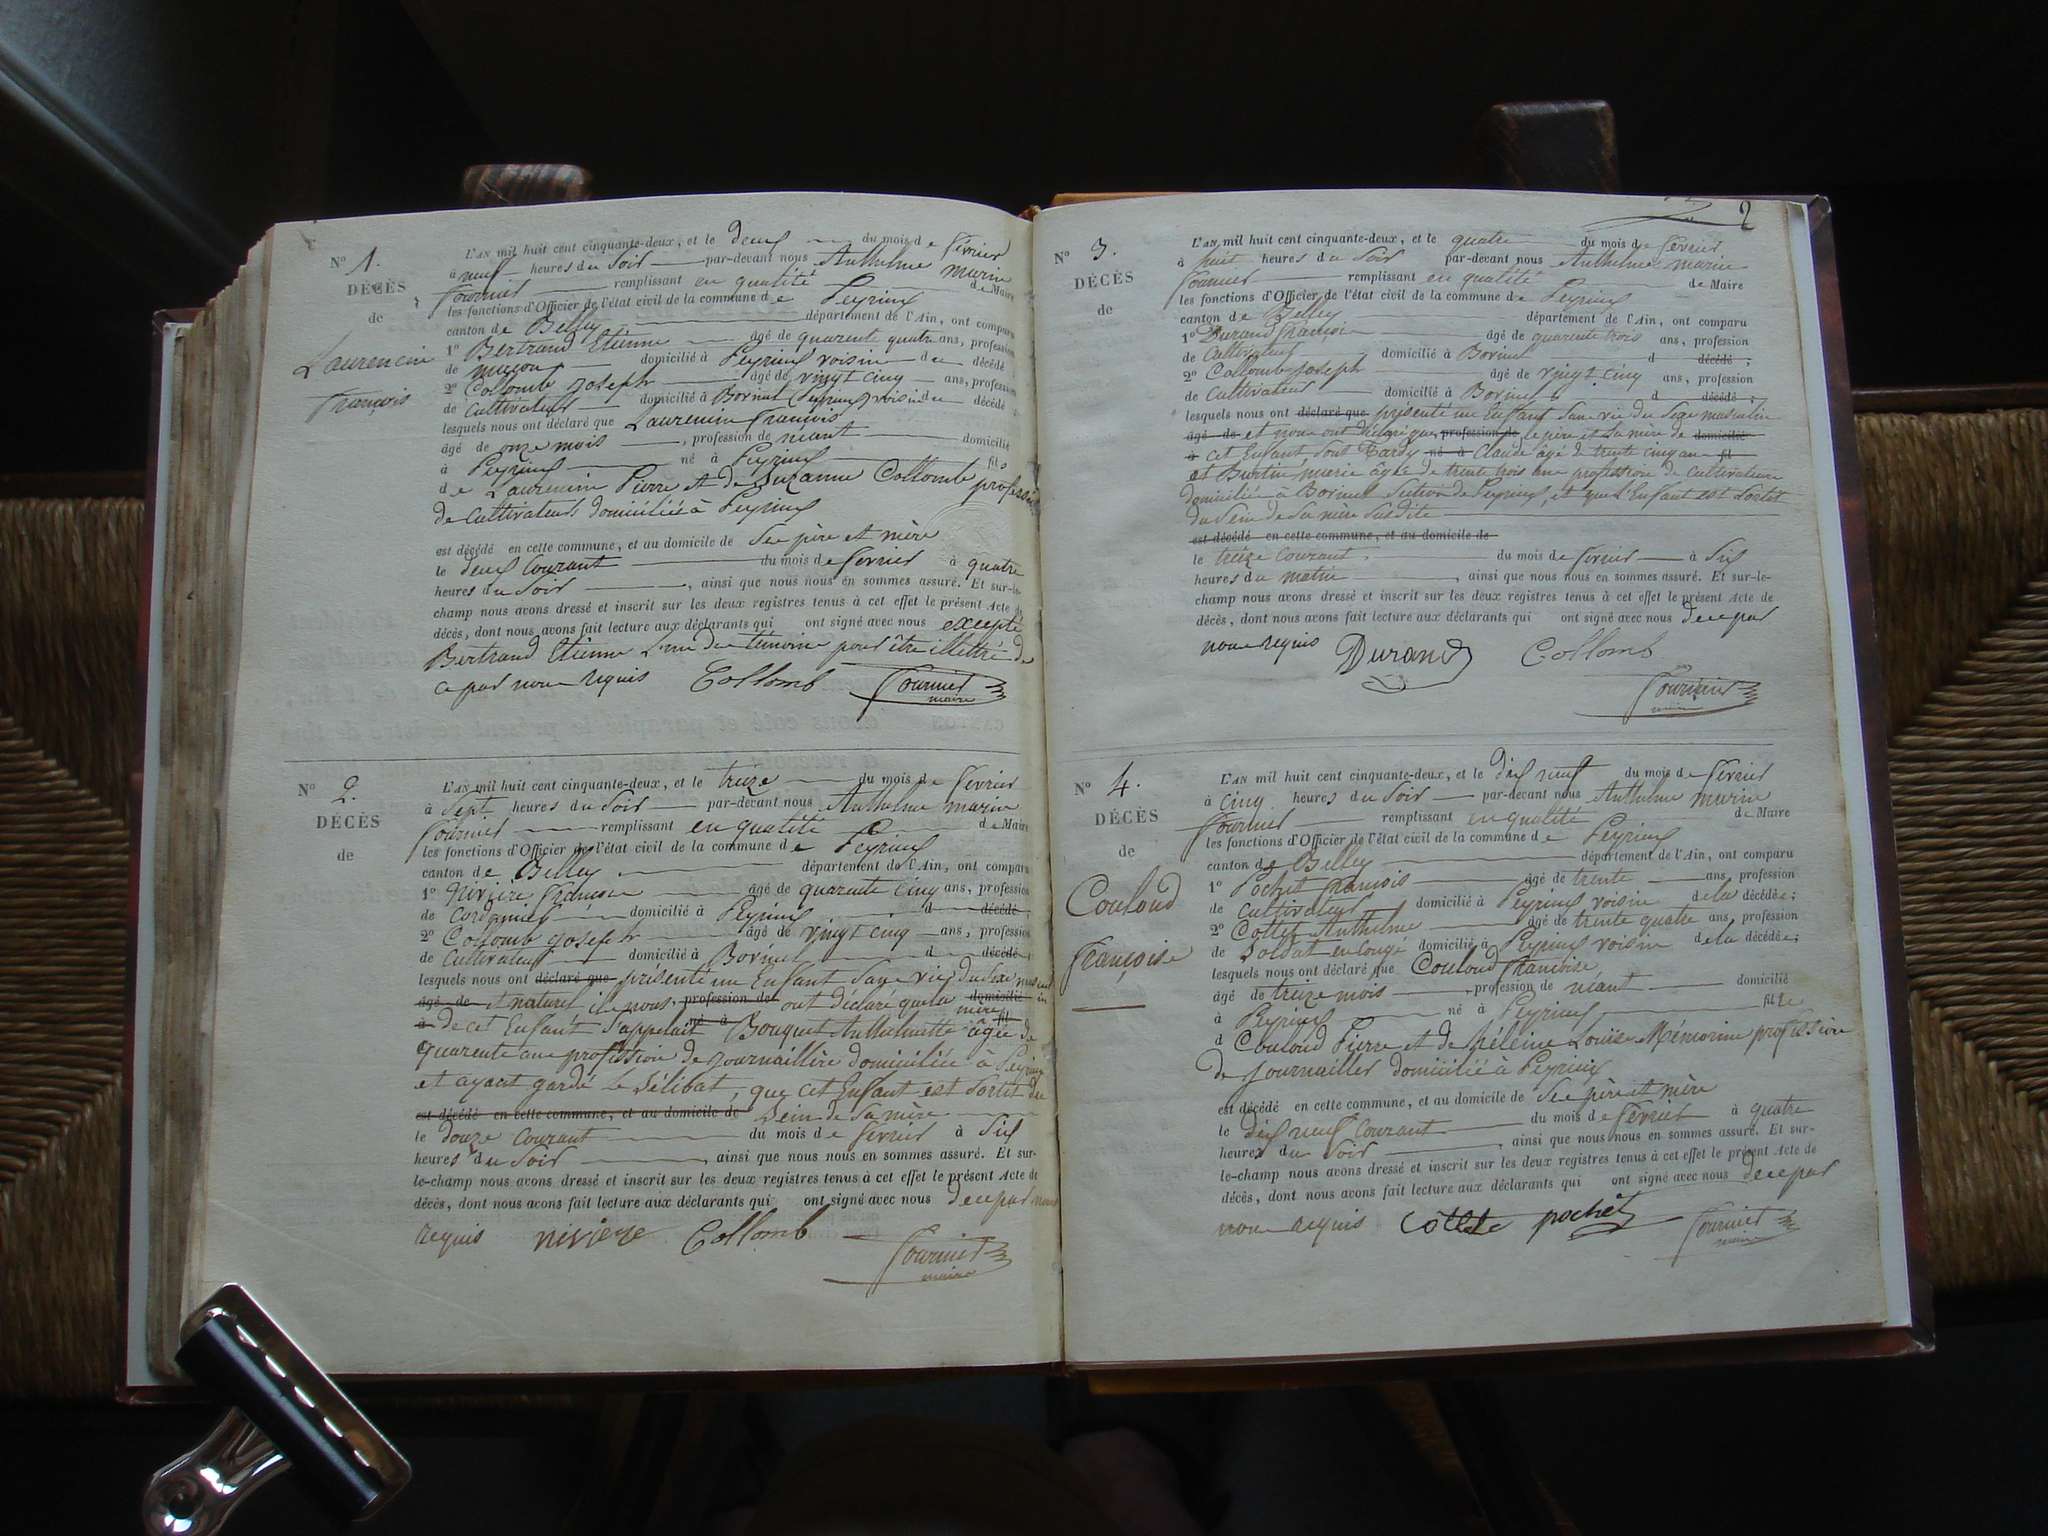 N° 1.
DÉCÈS
de
Laurencin
François
L'AN mil huit cent cinquante-deux, et le deux du mois de février
à neuf heures du Soir par-devant nous Anthelme marin
fournier remplissant en qualité de Maire
les fonctions d'Officier de l'état civil de la commune de Peyrieux
canton de Belley département de l'Ain, ont comparu
1° Bertrand Etienne âgé de quarente quatre ans, profession
de maçon domicilié à Peyrieux voisin du décédé ;
2° Collomb Joseph âgé de vingt cinq ans, profession
de Cultivateur domicilié à Borinet (Peyrieux) voisin du décédé ;
lesquels nous ont déclaré que Laurencin François
âgé de onze mois, profession de néant domicilié
à Peyrieux né à Peyrieux fils
de Laurencin Pierre et de Suzanne Collomb profession
de Cultivateurs domiciliés à Peyrieux
est décédé en cette commune, et au domicile de Ses père et mère
le deux Courant du mois de février à quatre
heures du Soir, ainsi que nous nous en sommes assuré. Et sur-le-
champ nous avons dressé et inscrit sur les deux registres tenus à cet effet le présent Acte de
décès, dont nous avons fait lecture aux déclarants qui ont signé avec nous excepté
Bertrand Etienne L'un des témoins pour être illettré de
ce par nous requis Collomb Fournier
maire
N° 2.
DÉCÈS
de
L'AN mil huit cent cinquante-deux, et le treize du mois de février
à Sept heures du Soir par-devant nous Anthelme marin
fournier remplissant en qualité de Maire
les fonctions d'Officier de l'état civil de la commune de Peyrieux
canton de Belley département de l'Ain, ont comparu
1° Rivière François âgé de quarente cinq ans, profession
de Cordonnier domicilié à Peyrieux d décédé ;
2° Collomb Joseph âgé de vingt cinq ans, profession
de Cultivateur domicilié à Borinet d décédé ;
lesquels nous ont déclaré que présenté un Enfant Sans vie, du Sexe
âgé de et naturel ils nous profession de ont déclaré que la mère domicilié
à de cet Enfant S'appelait né à Bouquet Anthelmette fil âgée de
quarente ans profession de Journaillère domiciliée à Peyrieux
et ayant gardé le Sélibat, que cet Enfant est Sortit du
est décédé en cette commune, et au domicile de Sein de Sa mère
le douze Courant du mois de février à Six
heures du Soir, ainsi que nous nous en sommes assuré. Et sur-
le-champ nous avons dressé et inscrit sur les deux registres tenus à cet effet le présent Acte de
décès, dont nous avons fait lecture aux déclarants qui ont signé avec nous de ce par nous
requis rivière Collomb Fournier
maire
2
N° 3.
DÉCÈS
de
L'AN mil huit cent cinquante-deux, et le quatre du mois de février
à huit heures du Soir par-devant nous Anthelme marin
fournier remplissant en qualité de Maire
les fonctions d'Officier de l'état civil de la commune de Peyrieux
canton de Belley département de l'Ain, ont comparu
1° Durand François âgé de quarente trois ans, profession
de Cultivateur domicilié à Borinet d décédé ;
2° Collomb Joseph âgé de vingt cinq ans, profession
de Cultivateur domicilié à Borinet d décédé ;
lesquels nous ont déclaré que présenté un Enfant Sans vie du Sexe masculin
âgé de et nous ont déclaré que profession de le père et la mère de domicilié
à cet Enfant Sont Tardy né à Claude âgé de trente cinq ans fil
et Burtin marie âgée de trente trois ans profession de Cultivateurs
domiciliés à Borinet Section de Peyrieux, et que l'Enfant est Sortit
du Sein de Sa mère Susdite
est décédé en cette commune, et au domicile de
le treize Courant du mois de février à Six
heures du matin, ainsi que nous nous en sommes assuré. Et sur-le-
champ nous avons dressé et inscrit sur les deux registres tenus à cet effet le présent Acte de
décès, dont nous avons fait lecture aux déclarants qui ont signé avec nous de ce par
nous requis Durand Collomb
Fournier
maire
N° 4.
DÉCÈS
de
Couloud
Françoise
L'AN mil huit cent cinquante-deux, et le dix neuf du mois de février
à Cinq heures du Soir par-devant nous Anthelme marin
fournier remplissant en qualité de Maire
les fonctions d'Officier de l'état civil de la commune de Peyrieux
canton de Belley département de l'Ain, ont comparu
1° Pochet François âgé de trente ans, profession
de Cultivateur domicilié à Peyrieux voisin de la décédée ;
2° Cottet Anthelme âgé de trente quatre ans, profession
de Soldat en Congé domicilié à Peyrieux voisin de la décédée ;
lesquels nous ont déclaré que Couloud Françoise
âgé de treize mois, profession de néant domicilié
à Peyrieux né à Peyrieux fille
d Couloud Pierre et de héleine Louise Mémorine profession
de Journailler domicilié à Peyrieux
est décédé en cette commune, et au domicile de Ses père et mère
le dix neuf Courant du mois de février à quatre
heures du Soir, ainsi que nous nous en sommes assuré. Et sur-
le-champ nous avons dressé et inscrit sur les deux registres tenus à cet effet le présent Acte de
décès, dont nous avons fait lecture aux déclarants qui ont signé avec nous de ce par
nous requis pochet Fournier
maire